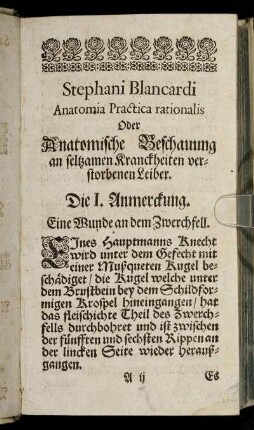 Stephani Blancardi
Anatomia Practica rationalis
Oder
Anatomische Beschauung
an seltzamen Kranckheiten ver-
storbenen Leiber.
Die I. Anmerckung.
Eine Wunde an dem Zwerchfell.
EInes Hauptmanns Knecht
wird unter dem Gefecht mit
einer Mußqueten Kugel be-
schädiget / die Kugel welche unter
dem Brustbein bey dem Schildför-
migen Krospel hineingangen / hat
das fleischichte Theil des Zwerch-
fells durchbohret und ist zwischen
der fünfften und sechsten Rippen an
der lincken Seite wieder herauß-
gangen.
A ij Es